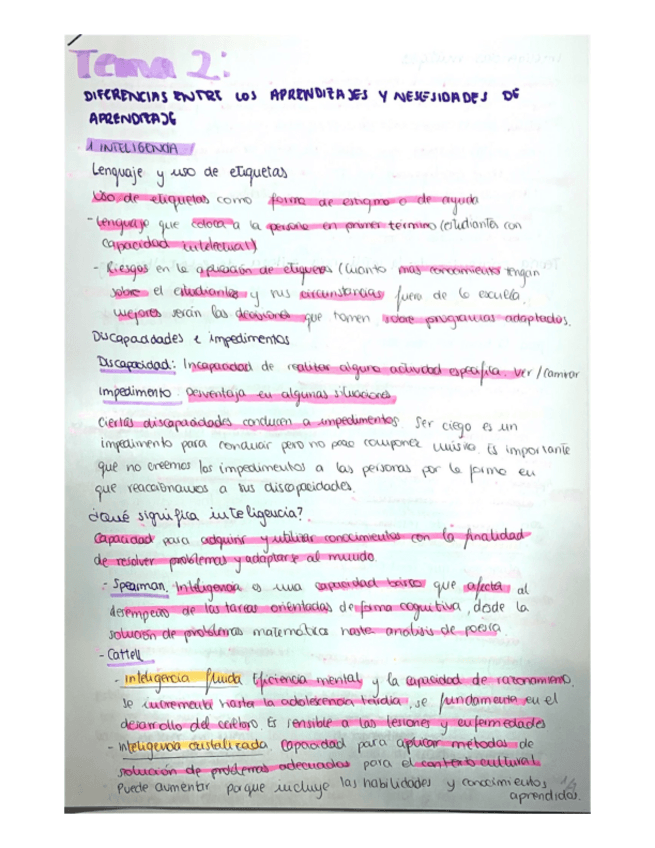 Tema 2:
DIFERENCIAS ENTRE LOS APRENDIZAJES Y NESESIDADES DE
APRENDIZAJE
1 INTELIGENCIA
Lenguaje y uso de etiquetas
Uso de etiquetas como forma de estigma o de ayuda
- Lenguaje que coloca a la persona en primer término (estudiantes con
capacidad intelectual)
- Riesgos en la aplicación de etiquetas (Cuanto mas conocimiento tengan
sobre el estudiantes y sus circunstancias fuera de la escuela.
mejores serán las decisiones que tomen sobre programas adaptados.
Discapacidades e impedimentos
Discapacidad: Incapacidad de realizar alguna actividad especifica. ver/caminar
Impedimento: Desventaja en algunas situaciones
Ciertas discapacidades conducen a impedimentos. Ser ciego es un
impedimento para conducir pero no para componer música. Es importante
que no creemos los impedimentos a las personas por la forma en
que reaccionamos a sus discapacidades.
¿Qué significa inteligencia?
Capacidad para adquirir y utilizar conocimientos con la finalidad
de resolver problemas y adaptarse al mundo.
- Spearman. Inteligencia es una capacidad básica que afecta al
desempeño de las tareas orientadas de forma cognitiva, desde la
solución de problemas matemática hasta analisis de poesia.
- Cattell
- Inteligencia fluida Eficiencia mental y la capacidad de razonamiento.
Se incrementa hasta la adolescencia tardia, se fundamenta en el
desarrollo del cerebro. Es sensible a las lesiones y enfermedades
- Inteligencia cristalizada. Capacidad para aplicar métodos de
solución de problemas adecuados para el contexto cultural.
Puede aumentar porque incluye las habilidades y conocimientos
aprendidas.